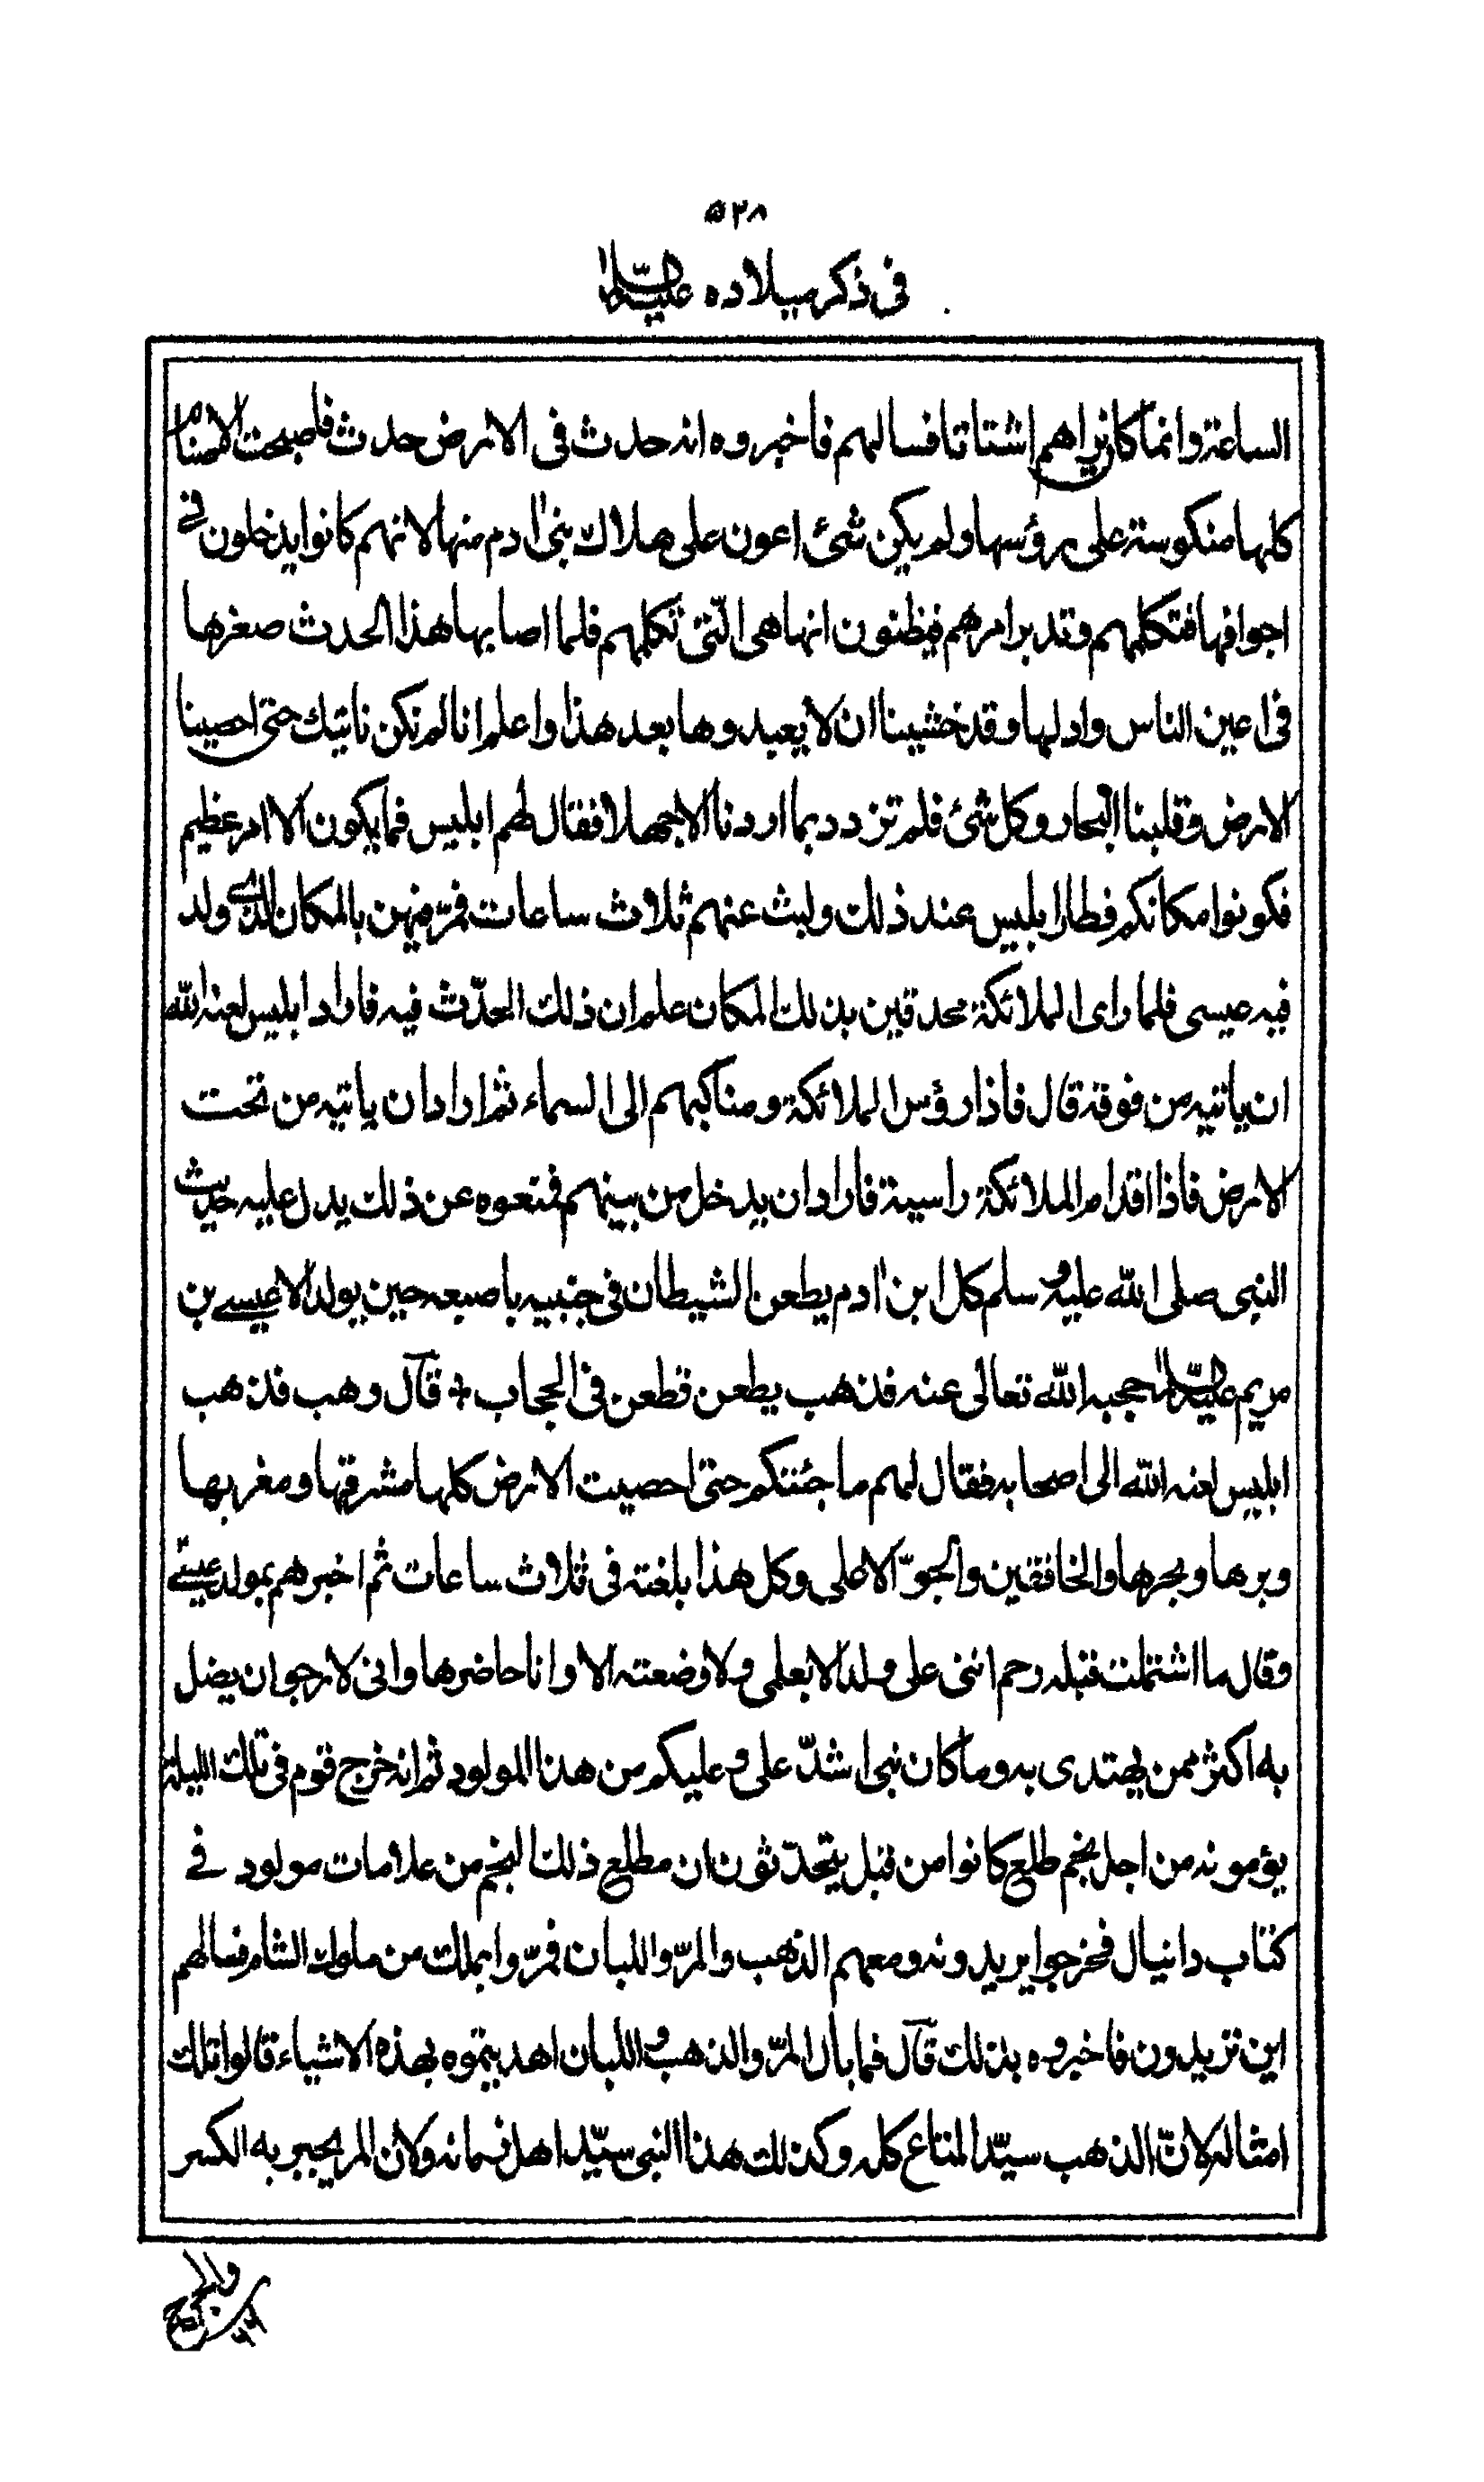 ٥٢٨
فى ذكر ميلاده عليه السلام
الساعة وانما كان يراهم اشتاتا فسالهم فاخبروه انه حدث فى الارض حدث فاصبحت الاصنام
كلها منكوسة على رؤسها ولم يكن شئ اعون على هلاك بنى ادم منها لانهم كانوا يدخلون فى
اجوافها فتكلمهم وتدبر امرهم فيظنون انها هى الّتى تكلمهم فلما اصابها هذا الحدث صغرها
فى اعين الناس واذلها وقد خشينا ان لا يعبدوها بعد هذا واعلم انا لم نكن ناتيك حتى احصينا
الارض وقلبنا البحار وكل شئ فلم تزدد بما اردنا الاجهلا فقال لهم ابليس فما يكون الا امر عظيم
فكونوا مكانكم فطار ابليس عند ذلك ولبث عنهم ثلاث ساعات فمرّ فيهن بالمكان الذى ولد
فيه عيسى فلما راى الملائكة محدقين بذلك المكان علم ان ذلك الحدّث فيه فاراد ابليس لعنه الله
ان ياتيه من فوقه قال فاذا رؤس الملائكة ومناكبهم الى السماء ثم اراد ان ياتيه من تحت
الارض فاذا اقدام الملائكة راسية فاراد ان يدخل من بينهم فمنعوه عن ذلك يدل عليه حديث
النبى صلى الله عليه وسلم كل ابن ادم يطعن الشيطان فى جنبيه باصبعه حين يولد الا عيسى بن
مريم عليه السلام حجبه الله تعالى عنه فذهب يطعن فطعن فى الحجاب + قآل وهب فذهب
ابليس لعنه الله الى اصحابه فقال لهم ما جئتكم حتى احصيت الارض كلها مشرقها ومغربها
وبرها وبحرها والخافقين والجوّ الاعلى وكل هذا بلغته فى ثلاث ساعات ثم اخبرهم بمولد عيسى
وقال ما اشتملت قبله رحم انثى على ولد الا بعلمى ولا وضعته الا وانا حاضرها وانى لارجو ان يضل
به اكثر ممن يهتدى به وما كان نبى اشدّ على وعليكم من هذا المولود ثم انه خرج قوم فى تلك الليلة
يؤمونه من اجل نجم طلع كانوا من قبل يتحدّثون ان مطلع ذلك النجم من علامات مولود فى
كتاب دانيال فخرجوا يريدونه ومعهم الذهب والمرّ واللبان فمرّوا بملك من ملوك الشام فسالهم
اين تريدون فاخبروه بذلك قآل فما بال المرّ والذهب واللبان اهديتموه بهذه الاشياء قالوا تلك
امثاله لانّ الذهب سيّد المتاع كله وكذلك هذا النبى سيّد اهل زمانه ولان المر يجبر به الكسر
والجرح